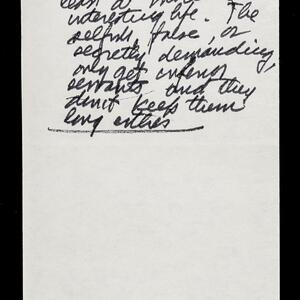 least a
interesting life. The
selfish, false, or
secretly demanding,
only get inferior
servants and they
don't keep them
long either